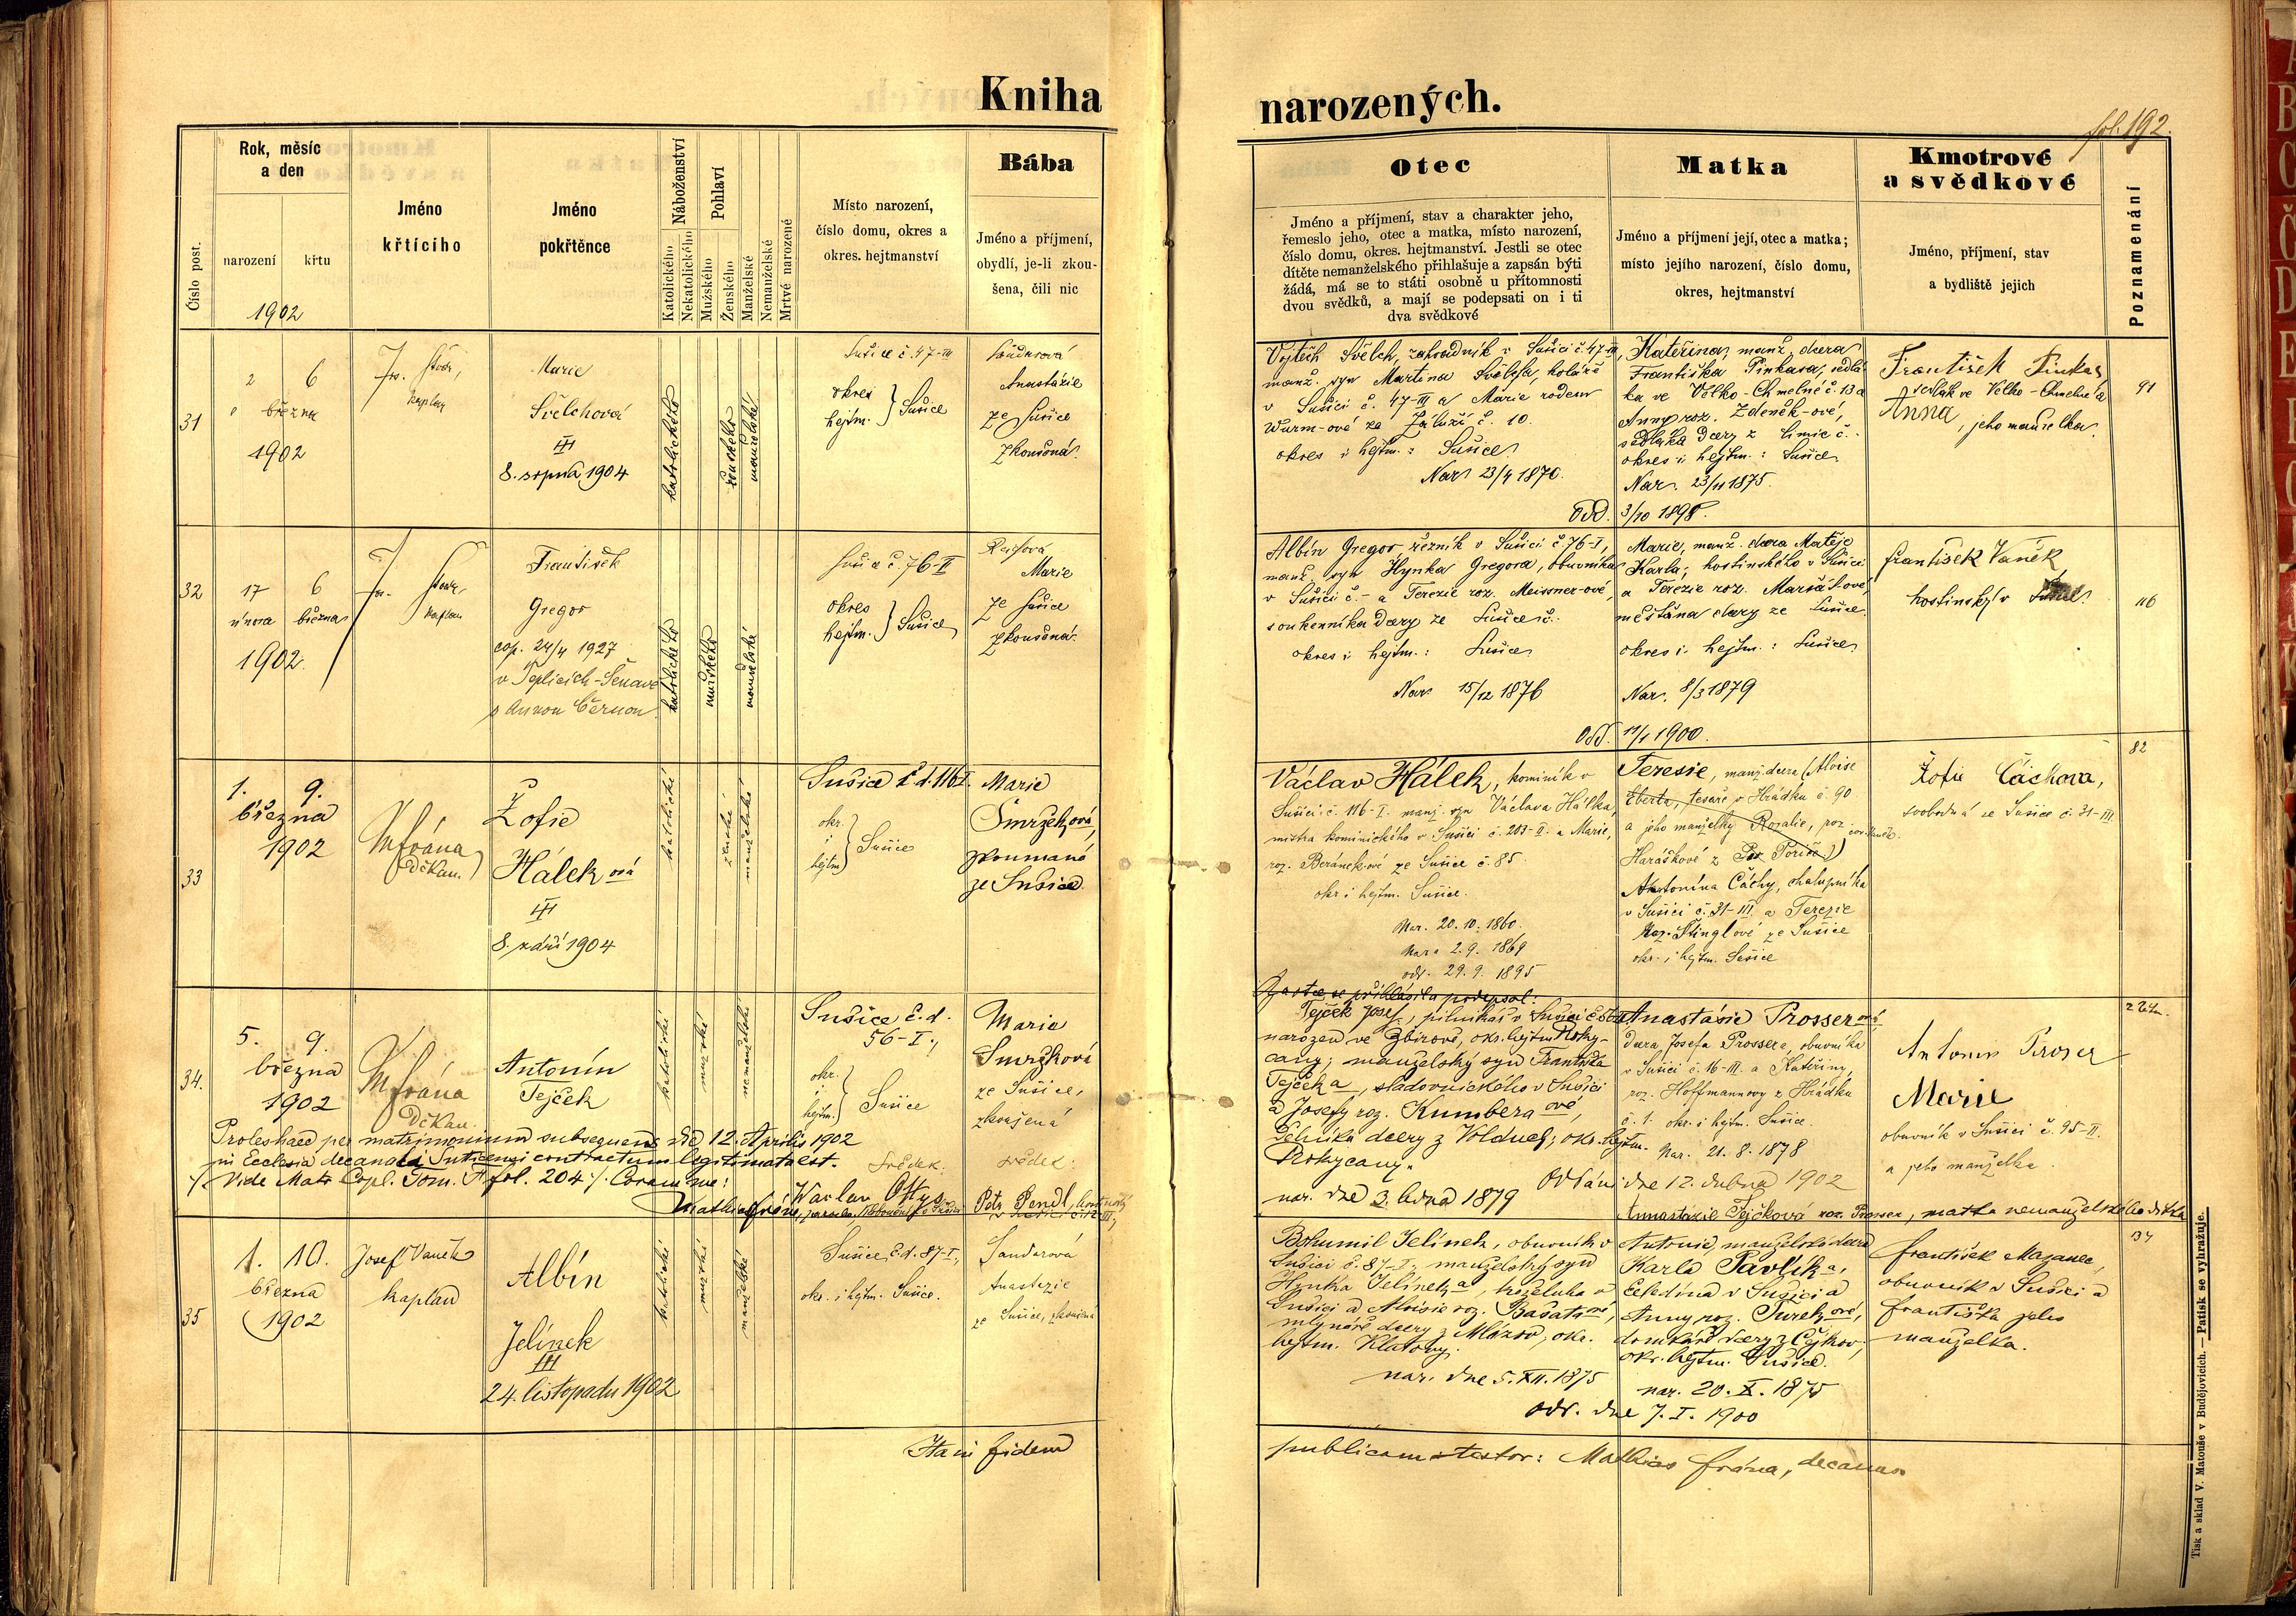 Kniha narozených.
fol. 192.
Číslo post.
Rok, měsíc
a den
narození
křtu
1902
Jméno
křtícího
Jméno
pokřtěnce
Náboženství
Katolického
Nekatolického
Pohlaví
Mužského
Ženského
Manželské
Nemanželské
Mrtvě narozené
Místo narození,
číslo domu, okres a
okres. hejtmanství
Bába
Jméno a příjmení,
obydlí, je-li zkou-
šena, čili nic
Otec
Jméno a příjmení, stav a charakter jeho,
řemeslo jeho, otec a matka, místo narození,
číslo domu, okres. hejtmanství. Jestli se otec
dítěte nemanželského přihlašuje a zapsán býti
žádá, má se to státi osobně u přítomnosti
dvou svědků, a mají se podepsati on i ti
dva svědkové
Matka
Jméno a příjmení její, otec a matka;
místo jejího narození, číslo domu,
okres, hejtmanství
Kmotrové
a svědkové
Jméno, příjmení, stav
a bydliště jejich
Poznamenání
31
2 6
března
1902
kaplan
Marie
Svělchová
III
8. srpna 1904
katolického
ženského
manželské
Sušice č. 47-III
okres
hejtm. } Sušice
Anastázie
ze Sušice
zkoušená.
Vojtěch Svělch, zahradník v Sušici č. 47-III,
manž. syn Martina Svělcha, koláře
v Sušici č. 47-III a Marie rodem
Wurm-ové ze Záluží č. 10.
okres i hejtm.: Sušice.
Nar. 23/4 1870.
Kateřina, manž. dcera
Františka Pinkasa, sedlá-
ka ve Velko-Chmelné č. 13 a
Anny roz. Zdeněk-ové,
sedláka dcery z č.
okres i hejtm.: Sušice
Nar. 23/11 1875.
Odd. 3/10 1898.
František Pinkas
sedlák ve Velko-Chmelné a
Anna, jeho manželka.
91
32
17 6
února března
1902.
kaplan
František
Gregor
cop. 24/4 1927
v Teplicích-Šenově
s Annou Černou
katolického
mužského
manželské
Sušice č. 76-I
okres
hejtm. } Sušice
Marie
ze Sušice
zkoušená.
Albín Gregor, řezník v Sušici č. 76-I,
manž. syn Hynka Gregora, obuvníka
v Sušici č. - a Terezie roz. Meissner-ové,
soukenníka dcery ze Sušice č.
okres i hejtm.: Sušice
Nar. 15/12 1876
Marie, manž. dcera Matěje
Karla, hostinského v Sušici
a Terezie roz. Maršátové,
měšťana dcery ze Sušice.
okres i hejtm.: Sušice
Nar. 8/3 1879
Odd. 1900.
František Vaněk,
hostinský v Sušici.
116
33
1. 9.
března
1902
M Frána
děkan.
Žofie
Hálek ová
III
8. září 1904
katolické
ženské
manželské
Sušice č. d. 116 I.
okr.
i
hejtm. } Sušice
Marie
Smržková,
zkoumaná
ze Sušice.
Václav Hálek, kominík v
Sušici č. 116-I. manž. syn Václava Hálka,
mistra kominického v Sušici č. 203-II. a Marie,
roz. Beránekové ze Sušice č. 85.
okr. i hejtm. Sušice.
Nar. 20. 10. 1860.
Nar. 2. 9. 1869
odd. 29. 9. 1895
Teresie, manž. dcera (Aloise
Eberta, tesaře v Hrádku č. 90
a jeho manželky Rosalie, roz.
Haráškové z Poříčí)
Antonína Čáchy, chalupníka
v Sušici č. 31-III. a Terezie
roz. Stinglové ze Sušice
okr. i hejtm. Sušice
Žofie Čáchova,
svobodná ze Sušice č. 31-III
82
34.
5. 9.
března
1902
M Frána
Děkan.
Antonín
Tejček
katolické
mužské
nemanželské
Sušice č. d.
56-I.,
okr.
i
hejtm. } Sušice
Marie
Smržková
ze Sušice,
zkoušená
Proles haec per matrimonium subsequens die 12. Aprilis 1902
in Ecclesia decanali Suticensi contractum legitimata est.
Vide Matr. Copl. Tom. fol. 204 /. Coram me:
svědek: svědek:
Petr Pendl,
Za otce se přihlásil a podepsal:
Tejček Josef, pilnikář v Sušici
narozen ve Zbirově, okr. hejtm. Roky-
cany, manželský syn Františka
Tejčeka, sladovnického v Sušici
a Josefy roz. Kumbera ové,
dcery z Volduch, okr. hejtm.
Rokycany.
nar. dne 3. ledna 1879
Anastásie Prosser ová
dcera Josefa Prossera, obuvníka
v Sušici č. 16-III. a Kateřiny,
roz. Hoffmannovy z Hrádku
č. 1. okr. i hejtm. Sušice.
Nar. 21. 8. 1878
Oddáni dne 12. dubna 1902
Annastazie Tejčková roz. Prosser, matka nemanželského dítka
Antonín Proser
Marie
obuvník v Sušici č. 95-II.
a jeho manželka.
35
1. 10.
března
1902
Josef Vaněk
kaplan
Albín
Jelínek
III
24. listopadu 1902
katolické
mužské
manželské
Sušice č. d. 87-I,
okr. i hejtm. Sušice.
Anastazie
ze Sušice, zkoušená
Bohumil Jelínek, obuvník v
Sušici č. 87-I, manželský syn
Hynka Jelínek a, koželuha v
Sušici a Aloisie roz. Bašatové,
mlynáře dcery z Mlázov, okr.
hejtm. Klatovy.
nar. dne 5. XII. 1875
Antonie, manželská dcera
Karla Pavlík a,
čeledína v Sušici a
Anny roz. Turek ové,
domkáře dcery z Čejkov,
okr. hejtm. Sušice.
nar. 20. X. 1875
odd. dne 7. I. 1900
František Mazanec,
obuvník v Sušici a
Františka jeho
manželka.
134
Ita in fidem publicam testor: Mathias Frána, decanus
Tisk a sklad V. Matouše v Budějovicích. — Patisk se vyhražuje.